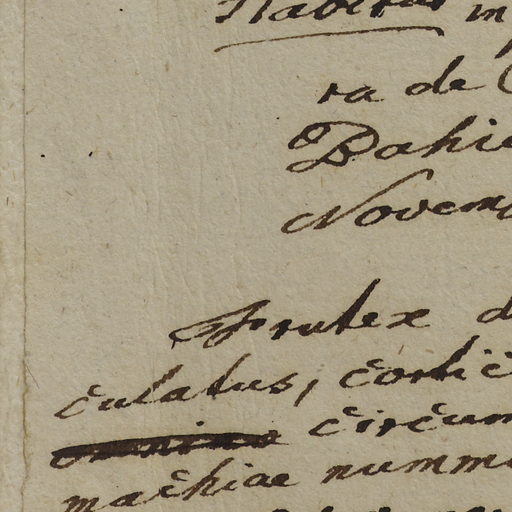 Habitat in
ra de
Bahie
Novem
Frutex d
culatus, cortic
circum
machiae nummu